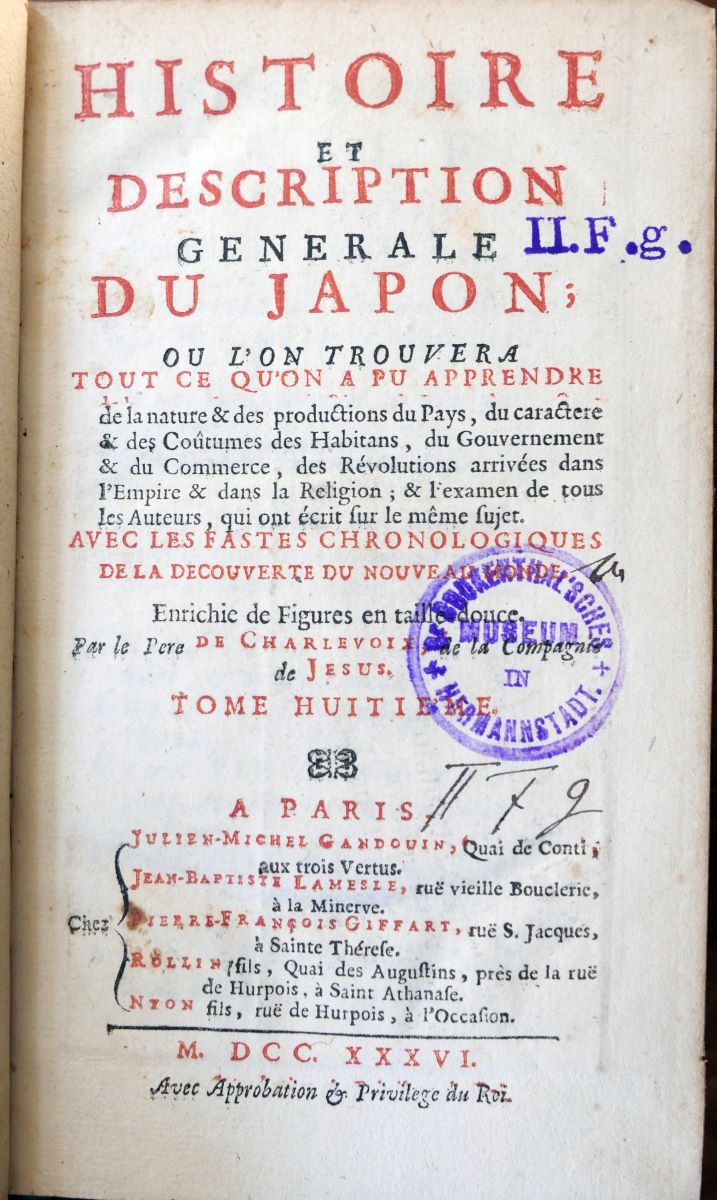 HISTOIRE
ET
DESCRIPTION
GENERALE
II.F.g.
DU JAPON;
OU L'ON TROUVERA
TOUT CE QU'ON A PU APPRENDRE
de la nature & des productions du Pays, du caractere
& des Coûtumes des Habitans, du Gouvernement
& du Commerce, des Révolutions arrivées dans
l'Empire & dans la Religion; & l'examen de tous
les Auteurs, qui ont écrit sur le même sujet.
AVEC LES FASTES CHRONOLOGIQUES
DE LA DECOUVERTE DU NOUVEAU MONDE.
Enrichie de Figures en taille-douce.
Par le Pere DE CHARLEVOIX, de la Compagnie
de JESUS.
TOME HUITIEME.
BR. BRUKENTHAL'SCHES
MUSEUM
IN
HERMANNSTADT.
II F g
A PARIS,
Chez
JULIEN-MICHEL GANDOUIN, Quai de Conti,
aux trois Vertus.
JEAN-BAPTISTE LAMESLE, ruë vieille Bouclerie,
à la Minerve.
PIERRE-FRANÇOIS GIFFART, ruë S. Jacques,
à Sainte Thérese.
ROLLIN fils, Quai des Augustins, près de la ruë
de Hurpois, à Saint Athanase.
NYON fils, ruë de Hurpois, à l'Occasion.
M. DCC. XXXVI.
Avec Approbation & Privilege du Roi.